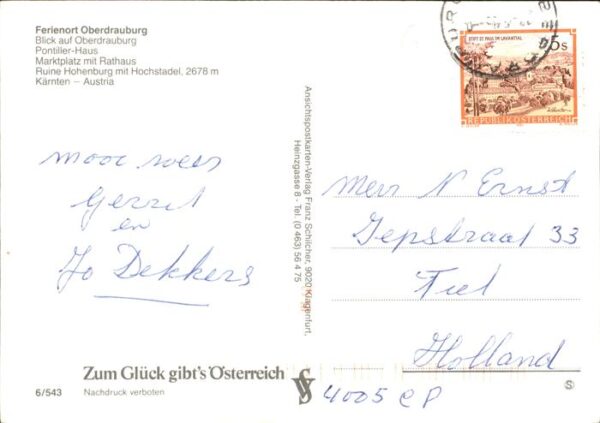 Ferienort Oberdrauburg
Blick auf Oberdrauburg
Pontiller-Haus
Marktplatz mit Rathaus
Ruine Hohenburg mit Hochstadel, 2678 m
Kärnten – Austria
mooi weer
Gerrit
en
Jo Dekkers
Zum Glück gibt's Österreich
6/543
Nachdruck verboten
Ansichtspostkarten-Verlag Franz Schilcher, 9020 Klagenfurt,
Heinzgasse 8 - Tel. (0 463) 56 4 75
STIFT ST. PAUL IM LAVANTTAL
5s
REPUBLIK ÖSTERREICH
Mevr N Ernst
Jepstraat 33
Tiel
Holland
4005 CP
S